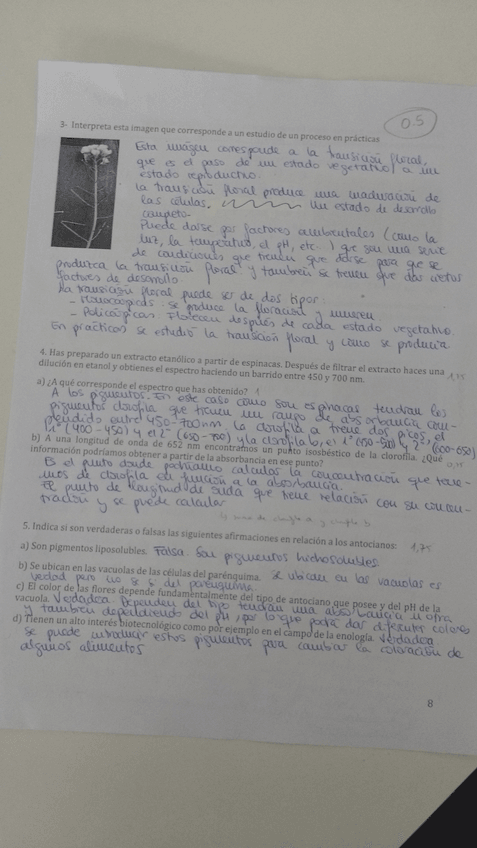 0.5
3- Interpreta esta imagen que corresponde a un estudio de un proceso en prácticas
Esta imagen corresponde a la transición floral,
que es el paso de un estado vegetativo a un
estado reproductivo.
La transición floral produce una maduración de
las células. Un estado de desarrollo
completo.
Puede darse por factores ambientales (como la
luz, la temperatura, el pH, etc.) que son una serie
de condiciones que tienen que darse para que se
produzca la transición floral y también se tienen que dar ciertos
factores de desarrollo
La transición floral puede ser de dos tipos:
- Monocárpicas: se produce la floración y mueren
- Policárpicas: Florecen después de cada estado vegetativo.
En prácticas se estudió la transición floral y cómo se producía.
4. Has preparado un extracto etanólico a partir de espinacas. Después de filtrar el extracto haces una
dilución en etanol y obtienes el espectro haciendo un barrido entre 450 y 700 nm.
1,25
a) ¿A qué corresponde el espectro que has obtenido? 1
A los pigmentos. En este caso como son espinacas tendrán los
pigmentos clorofila que tienen un rango de absorbancia com-
prendido entre 450-700nm. La clorofila a tiene dos picos, el
1º (400-450) y el 2º (650-700) y la clorofila b, el 1º (450-500) y 2º (600-650)
b) A una longitud de onda de 652 nm encontramos un punto isosbéstico de la clorofila. ¿Qué
información podríamos obtener a partir de la absorbancia en ese punto?
Es el punto donde podríamos calcular la concentración que tene-
mos de clorofila en función a la absorbancia.
El punto de longitud de onda que tiene relación con su concen-
tración y se puede calcular
5. Indica si son verdaderas o falsas las siguientes afirmaciones en relación a los antocianos: 1,75
a) Son pigmentos liposolubles. Falsa. Son pigmentos hidrosolubles.
b) Se ubican en las vacuolas de las células del parénquima. Se ubican en las vacuolas es
verdad pero no sé si del parénquima.
c) El color de las flores depende fundamentalmente del tipo de antociano que posee y del pH de la
vacuola. Verdadera. Dependen del tipo tendrán una absorbancia u otra
y también dependiendo del pH, por lo que podrá dar diferentes colores
d) Tienen un alto interés biotecnológico como por ejemplo en el campo de la enología. Verdadera
se puede introducir estos pigmentos para cambiar la coloración de
algunos alimentos
8